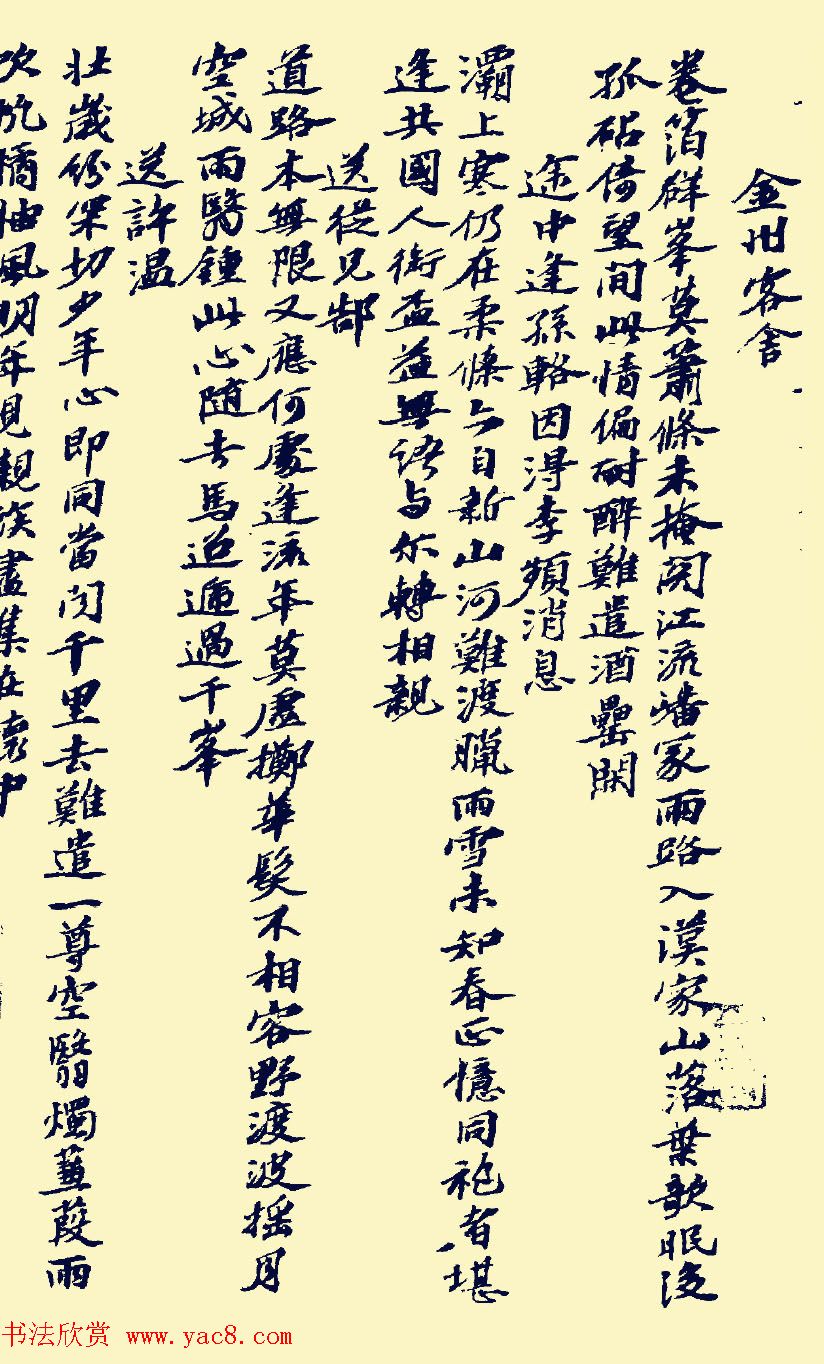 金州客舍
卷箔群峯莫蕭條未掩関江流嶓冢雨路入漢家山落葉欹眠後
孤砧倚望間此情偏耐醉難遣酒罍閑
途中逢孫輅因淂李頻消息
灞上寒仍在柔條亦自新山河難渡臘雨雪未知春正憶同袍者堪
逢共國人銜盃益無語与尔轉相親
送從兄郜
道路本無限又應何處逢流年莫虛擲華髮不相容野渡波搖月
空城雨翳鍾此心隨去馬迢遞過千峯
送許温
壯歲分罙切少年心即同當聞千里去難遣一尊空翳燭蒹葭雨
吹帆橘柚風明年見親族盡集在懷中
书法欣赏 www.yac8.com